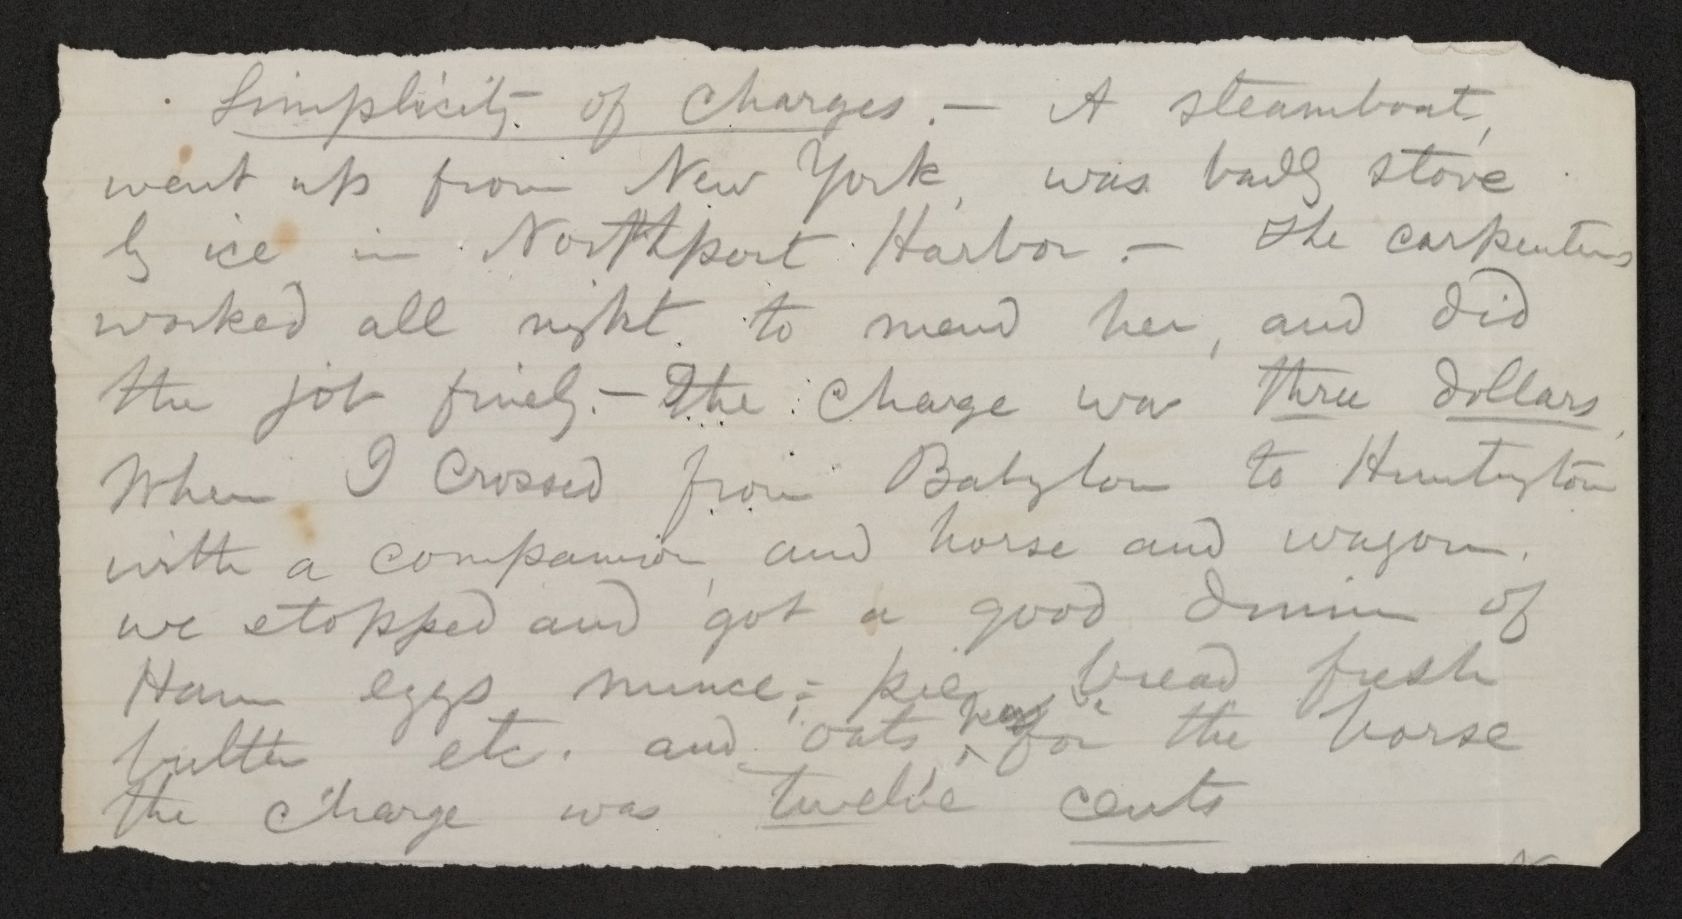 Simplicity of Charges. — A steamboat,
went up from New York, was badly stove
by ice in Northport Harbor. — The carpenters
worked all night to mend her, and did
the job finely. — The charge was three dollars,
When I crossed from Babylon to Huntington
with a companion, and horse and wagon.
we stopped and got a good dinner of
Ham eggs mince-pie bread fresh
butter etc. and oats, hay for the horse
the charge was twelve cents